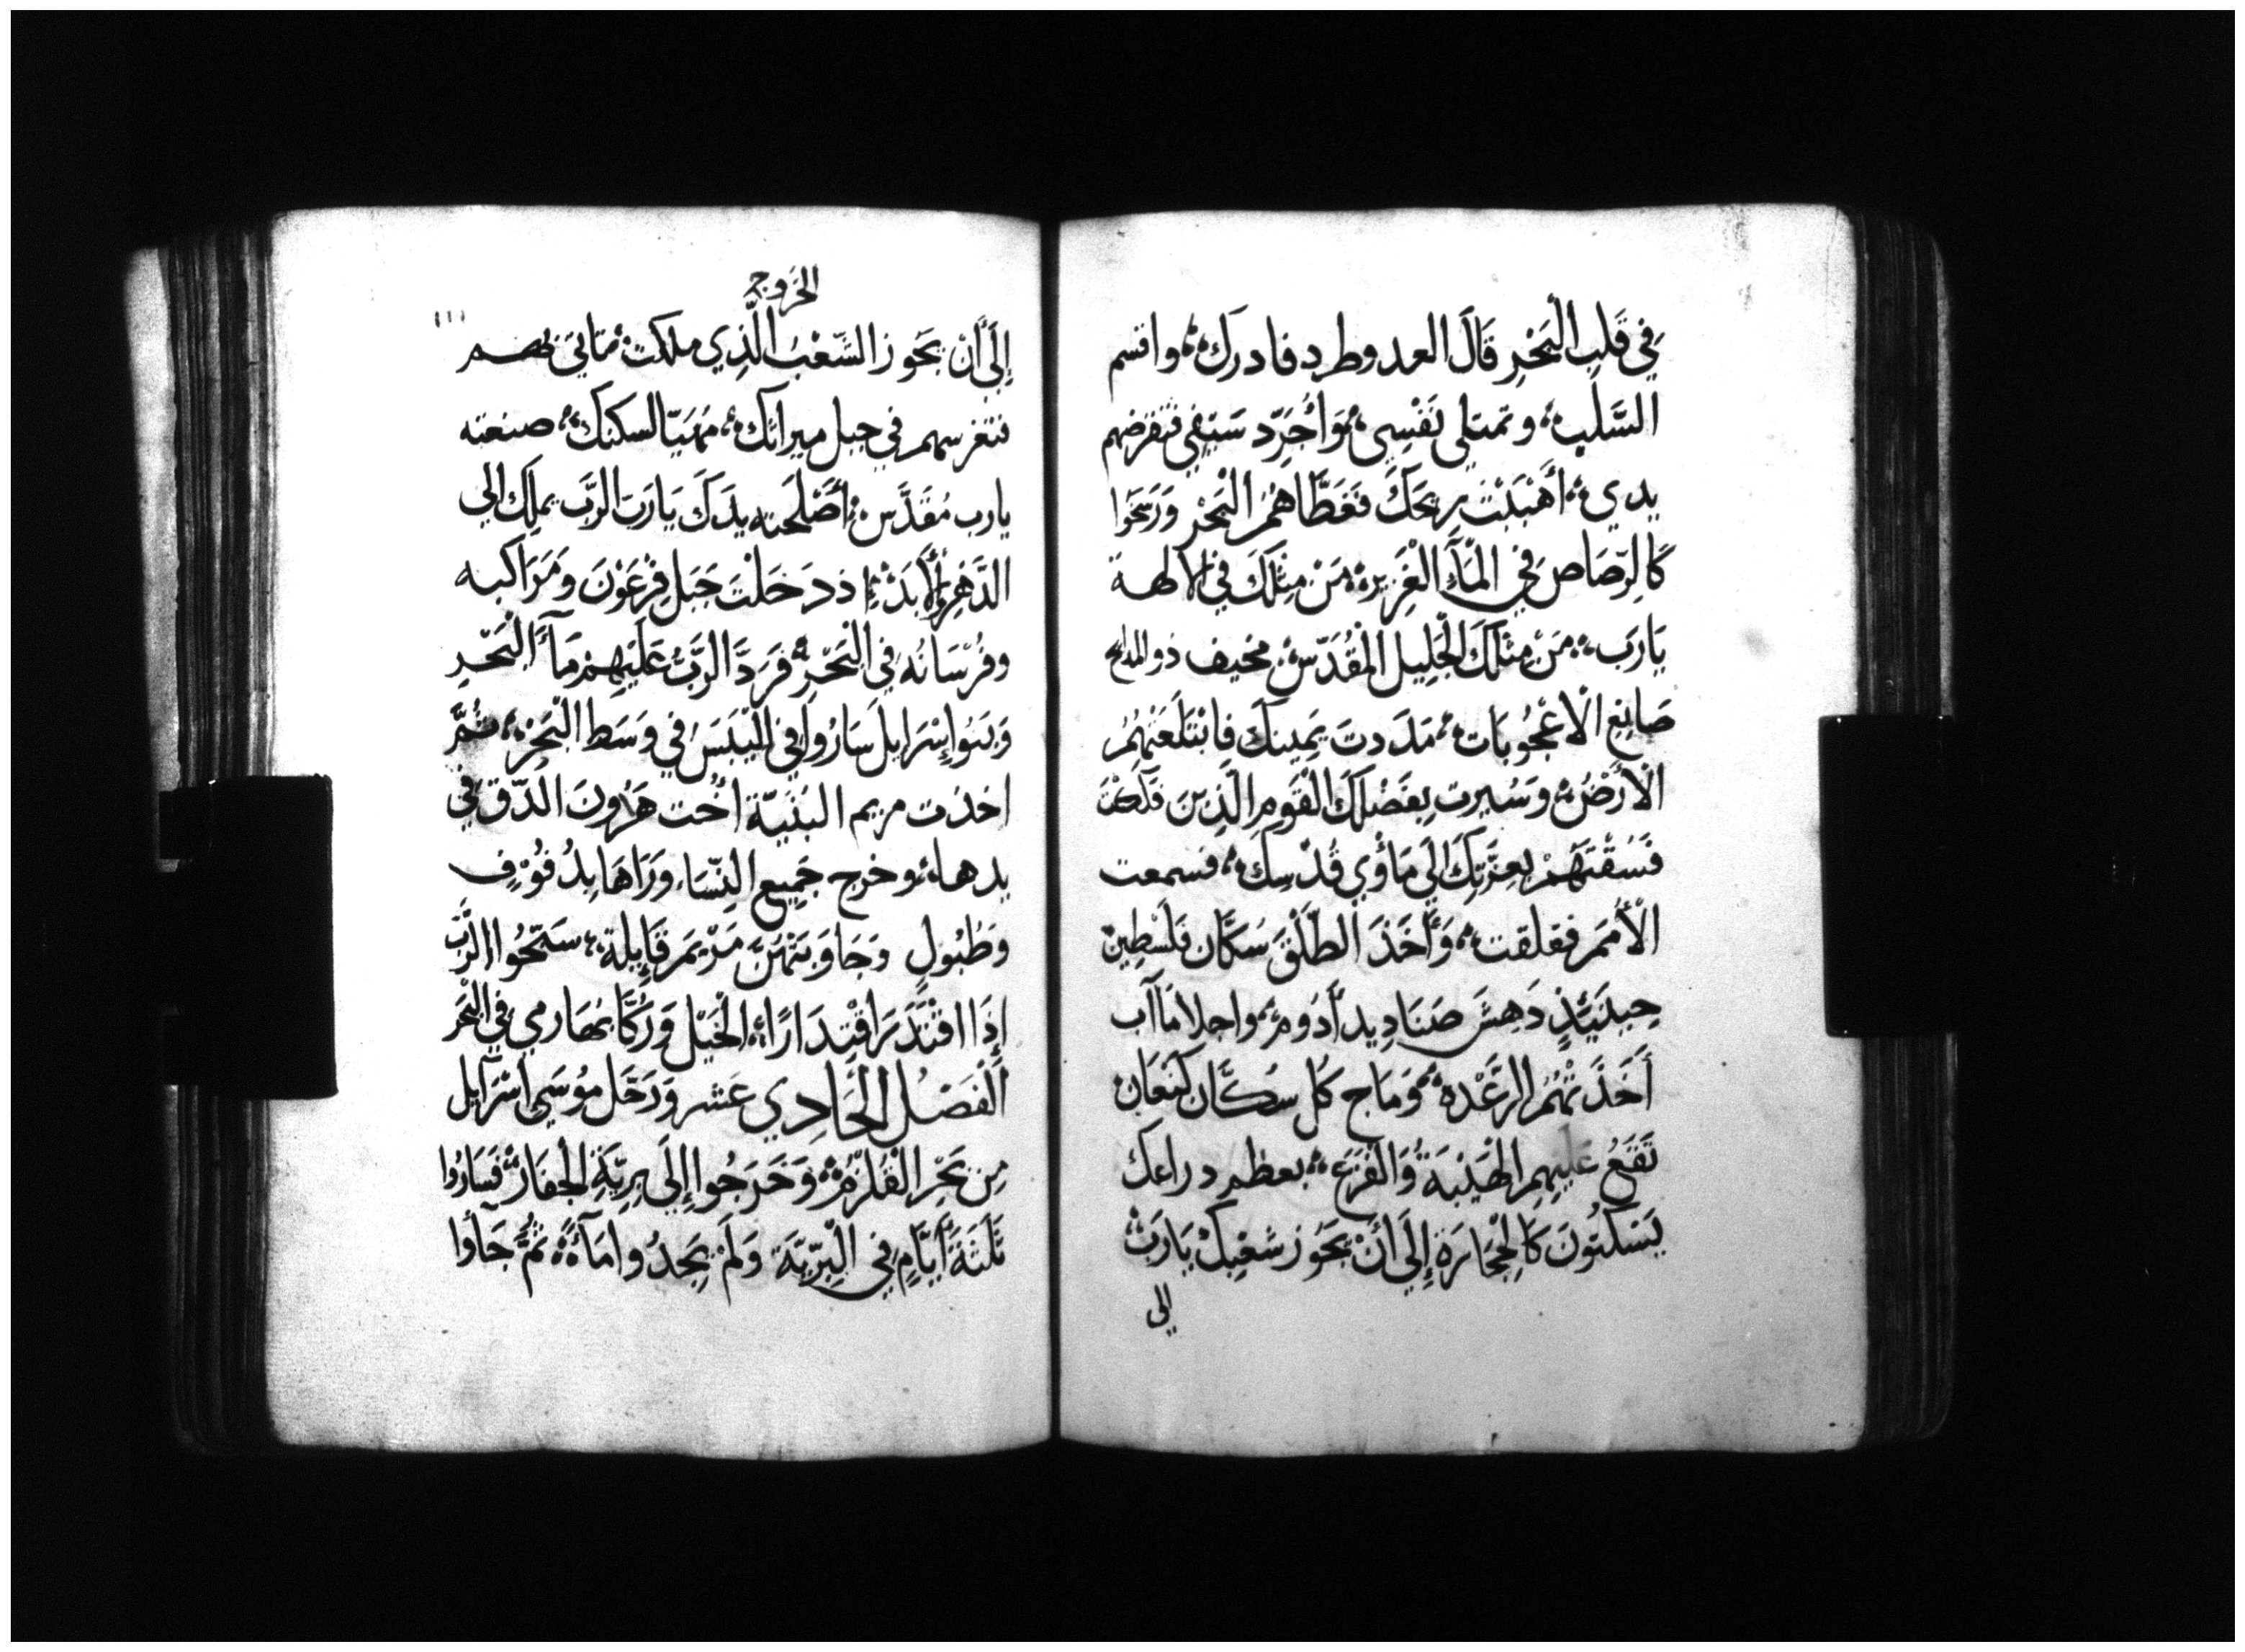 فِي قَلبِ الْبَحْرِ قَالَ العدو طرد فادرك، واقسم
السَّلب، وتمتلي نَفْسِي، وَاُجَرِّد سَيْفِي فتقرضهم
يدي، أَهْبَبْتَ رِيحَكَ فَغَطَّاهُمُ الْبَحْر وَرَسَخُوا
كَالرَّصَاصِ فِي الْمَآءِ الْغَزِير، مَنْ مِثلكَ فِي الالهة
يَارَب، مَنْ مِثلكَ الْجَلِيل الْمُقَدَّس، مخيف ذو المدايح
صَانِع الْاعْجُوبَات، مَدَدتَ يَمِينكَ فَابْتَلَعَتْهُمُ
الْأَرْضُ، وَسُيرت بِفَضْلكَ الْقَوم الَّذِينَ فَكَكْتَ
فَسُقْتَهُمْ بِعِزَّتِكَ الَي مَأوي قُدْسِكَ، فسمعت
الْأُمَمُ فقلقت، وَأَخَذَ الطَّلْقَ سُكَّان فَلَسْطِينْ
حِينَئِذٍ دَهِشَ صَنَادِيد أَدُوم، واجلا مَاآب
أَخَذَتْهُمُ الرِّعْدة، وَمَاج كُل سكَّان كَنعَان
تَقَعُ عَلَيْهِمِ الْهَيْبَةُ وَالفزع، بعظم دراعك
يَسْكُتُونَ كَالْحِجَارَةِ إِلَي أَنْ يَجُوز شعبك يَارَبْ
الي
الخروج
١١١
إِلَي أَنْ يَجُوز الشَّعْبُ الَّذِي ملكت، تاتي بهم
فتغرسهم في جبل ميراثك، مُهَيَّا لسكنك، صنعته
يارب مُقَدَّس، أَصْلَحته يدَكَ يَارَبْ الرَّب يملك الي
الدَّهْرِ وَالأَبَدْ، اذ دَخَلَتْ خَيَل فِرْعَوْنَ وَمَرَاكبه
وفُرْسَانُه فِي الْبَحْرِ، فَرَدَّ الرَّبُّ عَلَيْهِمْ مَآءَ الْبَحْرِ
وَبَنُو إِسْرَايل سَارُوا فِي الْيَبَسِ فِي وَسَط الْبَحْرِ، ثُمَّ
اخذت مريم النَبِيَّة أُخت هَرُونَ الدّفّ في
يدها، وخرج جَمِيع النِّسَا وَرَاهَا بِدُفُوْفٍ
وَطُبُولٍ وَجَاوَبَتْهُنَّ مَرْيَم قَايلة، سَبِّحُوا الرَّبّ
إِذَا اقْتَدَرَ اقْتِدَارًا، الْخَيْل وَرُكَّابهَا رمي فِي الْبَحْر
الْفَصْلُ الْحَادِي عَشر وَرَحَّل مُوسَي اسْرَآيل
مِن بَحْرِ الْقُلْزُم، وَخَرَجُوا إِلَي بَرِيَّةِ الْجِفَارْ فَسَارُوا
ثَلَثَةَ أَيَّامٍ فِي الْبَرِّيَّة وَلَمْ يَجِدُوا مَآءً، ثُمَّ جَآءُوا